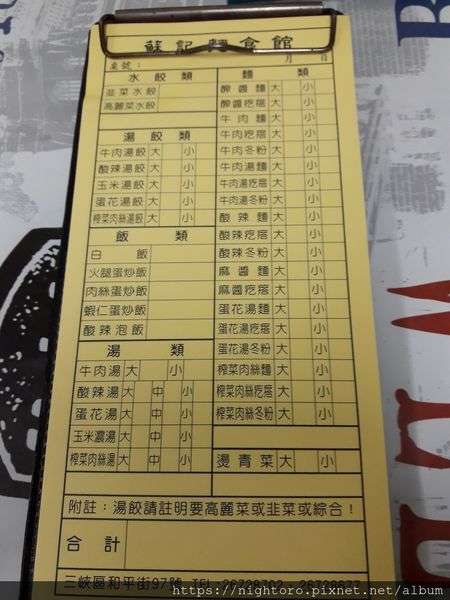 蘇記麵食館
桌號： 月 日
水餃類
韭菜水餃
高麗菜水餃
湯餃類
牛肉湯餃 大 小
酸辣湯餃 大 小
玉米湯餃 大 小
蛋花湯餃 大 小
榨菜肉絲湯餃 大 小
飯類
白飯
火腿蛋炒飯
肉絲蛋炒飯
蝦仁蛋炒飯
酸辣泡飯
湯類
牛肉湯 大 小
酸辣湯 大 中 小
蛋花湯 大 中 小
玉米濃湯 大 中 小
榨菜肉絲湯 大 中 小
麵類
炸醬麵 大 小
炸醬疙瘩 大 小
牛肉麵 大 小
牛肉疙瘩 大 小
牛肉冬粉 大 小
牛肉湯麵 大 小
牛肉湯疙瘩 大 小
牛肉湯冬粉 大 小
酸辣麵 大 小
酸辣疙瘩 大 小
酸辣冬粉 大 小
麻醬麵 大 小
麻醬疙瘩 大 小
蛋花湯麵 大 小
蛋花湯疙瘩 大 小
蛋花湯冬粉 大 小
榨菜肉絲麵 大 小
榨菜肉絲疙瘩 大 小
榨菜肉絲冬粉 大 小
燙青菜 大 小
附註：湯餃請註明要高麗菜或韭菜或綜合！
合計
三峽區和平街97號 TEL：26728702．26728677
https://nightoro.pixnet.net/album